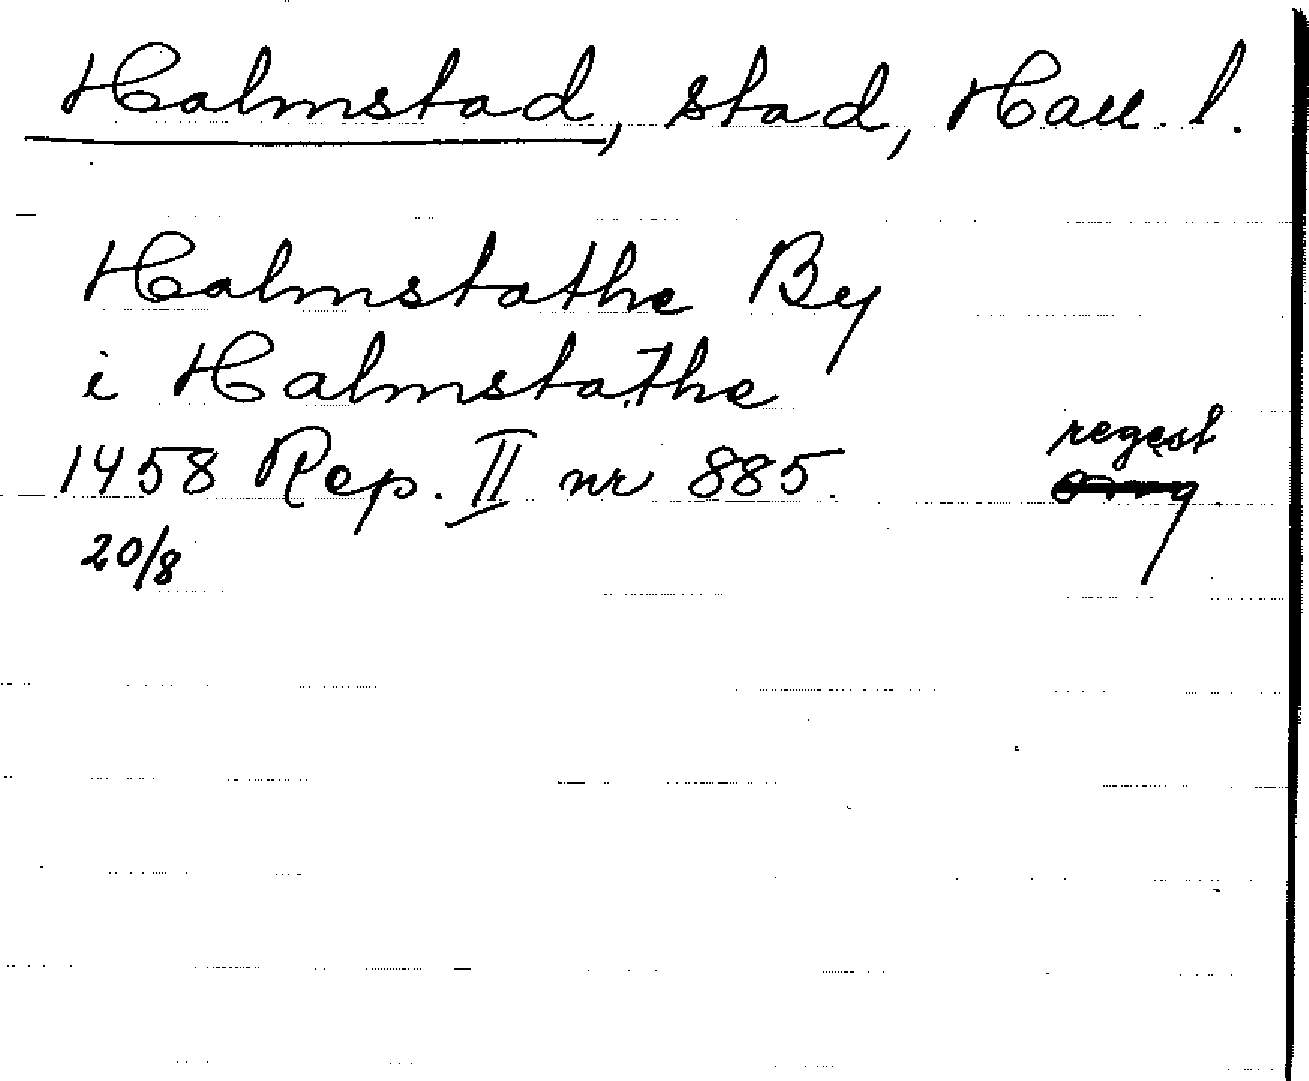 Halmstad, stad, Hall. l.
Halmstathe By
i Halmstathe
1458 Rep. II nr 885.
regest
20/8